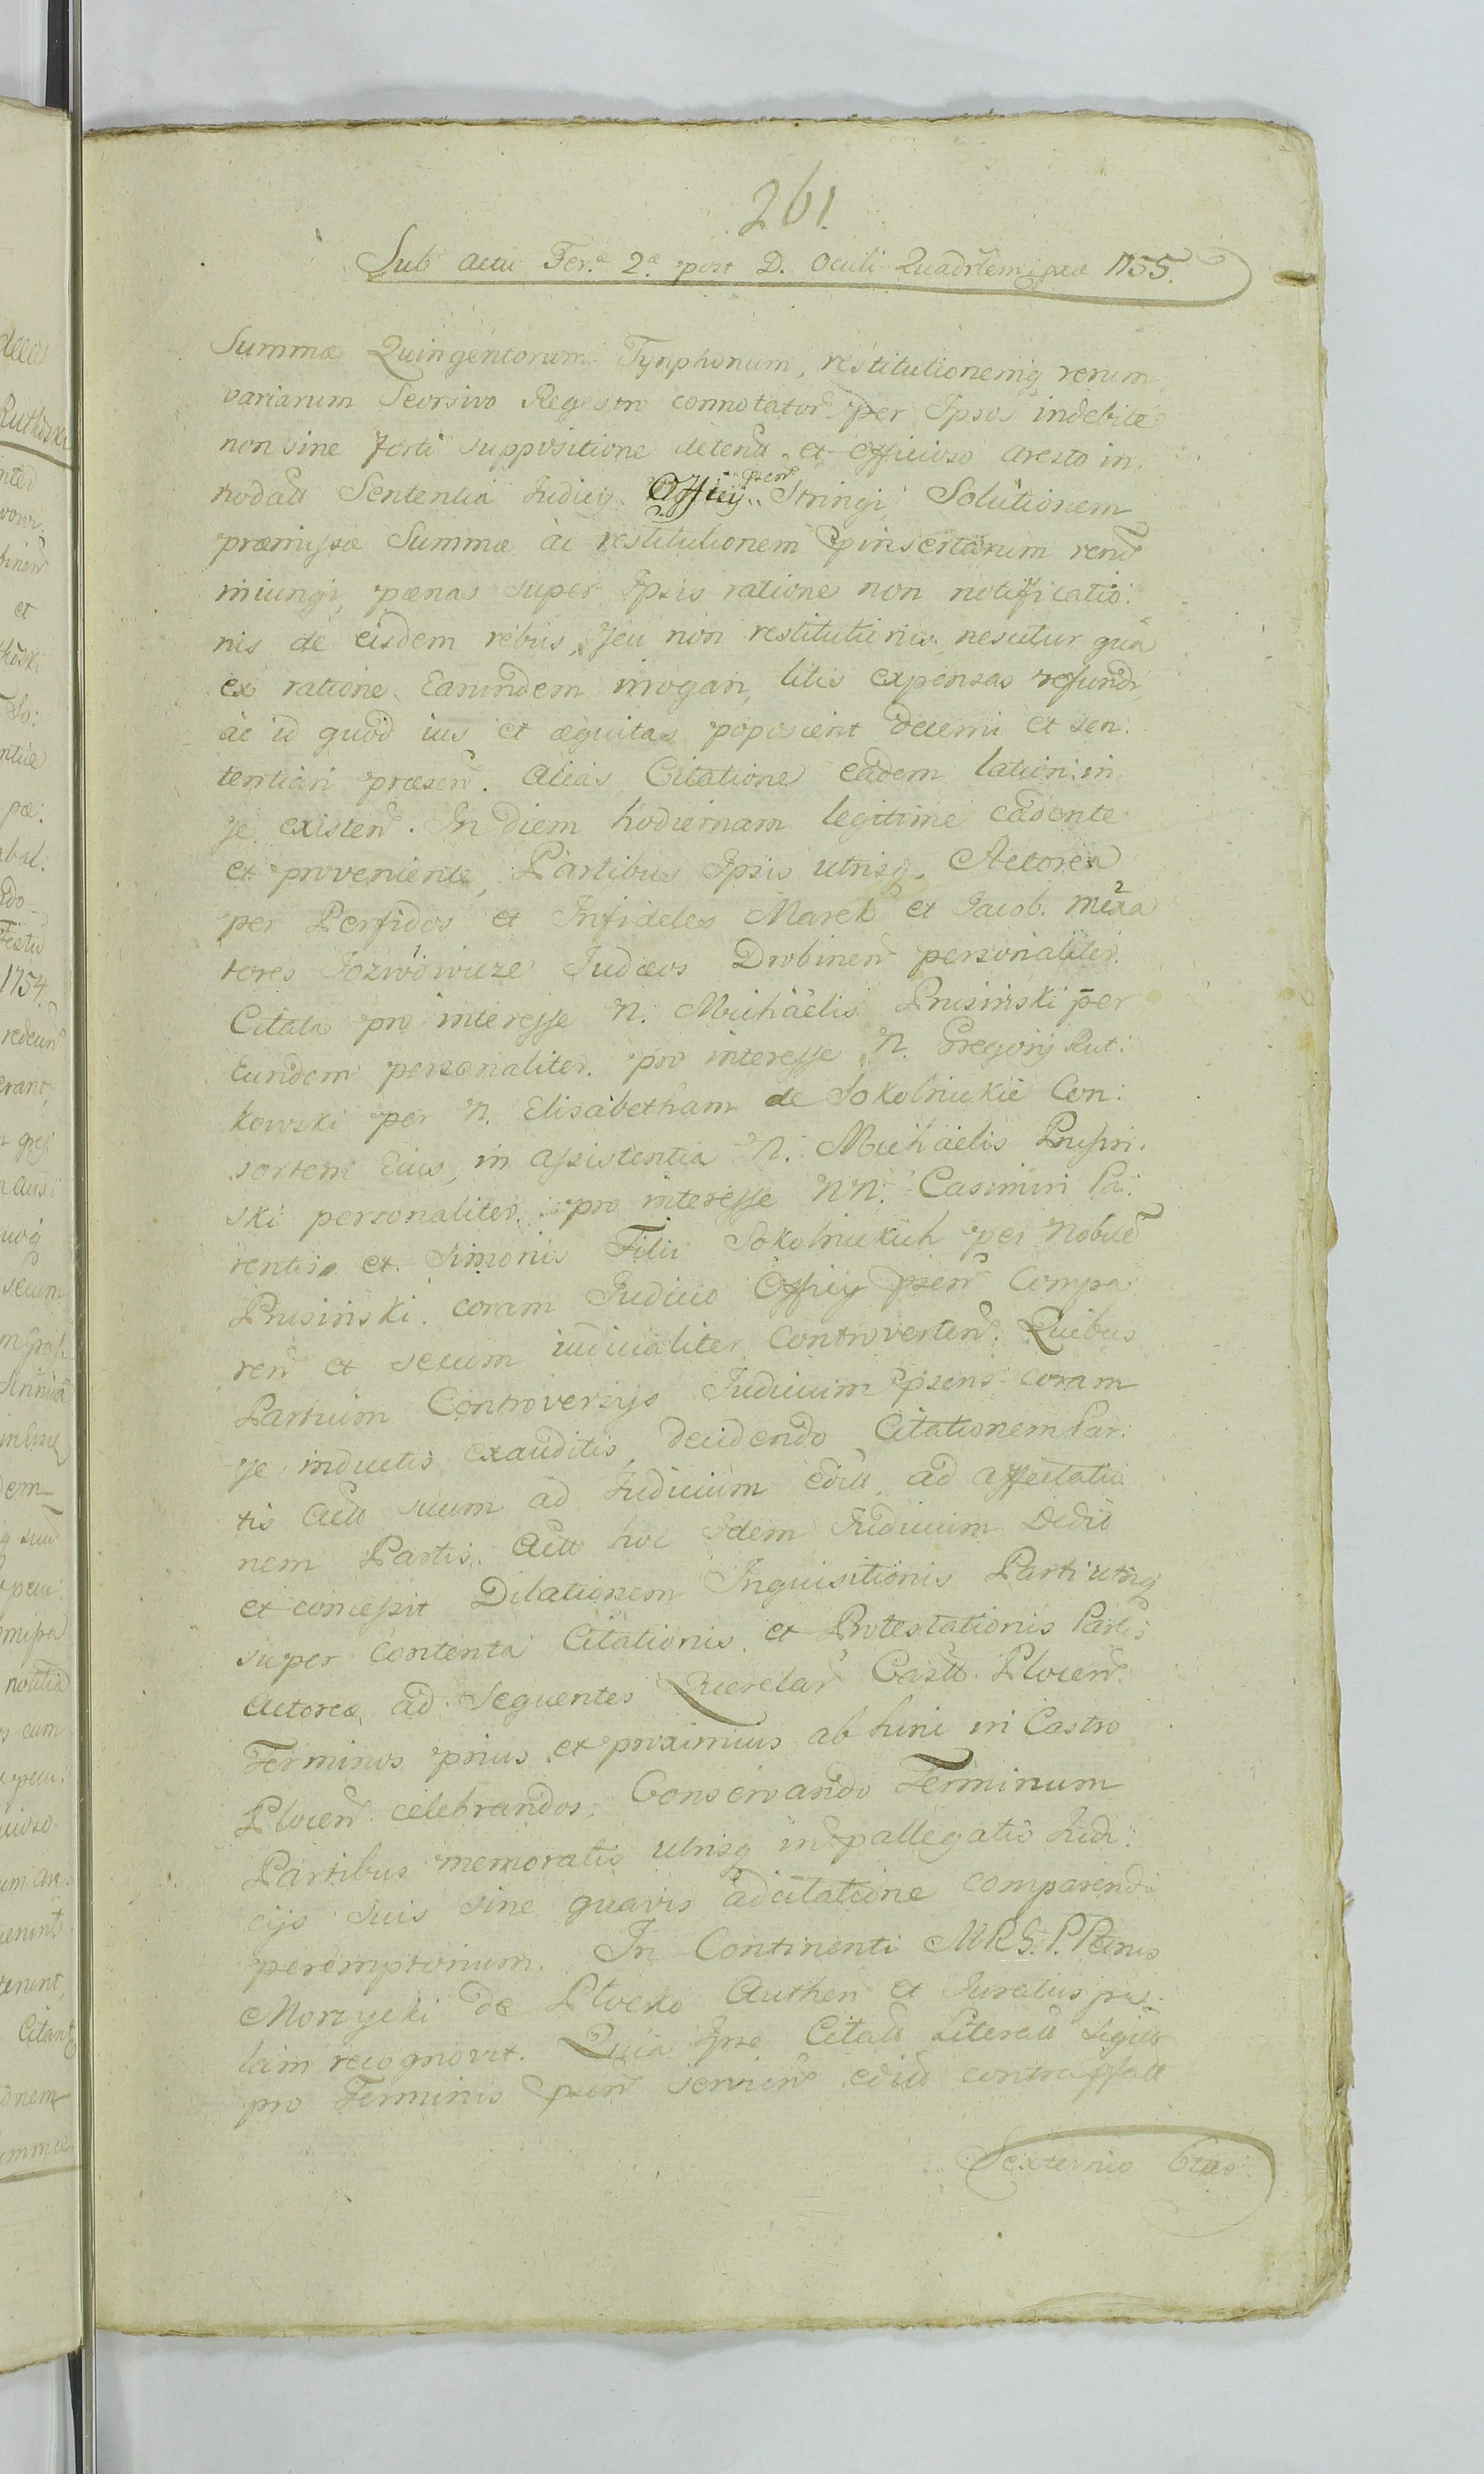 261.
Sub actu Fer.æ 2.æ post D. Oculi Quadr̃lem 1755.
Summæ Quingentorum Tynphonum, restitutionemq̨ rerum
variarum Seorsivo Regestro connotatar̃ per Ipsos indebite
non sine forti suppositione detent̃ et officioso aresto in,
nodatt Sententia Iudicij Officij pñt Stringi, Solutionem
præmissæ Summæ ac restitutionem pinsertarum rerũ
iniungi, pænas super Ipsis ratione non notificatio:
nis de eisdem rebus, seu non restitutionis
ex ratione Earundem irrogari, litis expensas refundi,
ac id quod ius et æquitas poposcerit decerni et sen:
tentiari præsen̂. alias Citatione eadem lation: in
se existen̂. In diem hodiernam legitime cadente
et proveniente, Partibus Ipsis utrisq̨. Actorea
per Perfidos et Infideles Marek et Jacob. 2
tores 1 Jozwowicze Judæos Drobinen̂ personaliter.
Citata pro interesse N. Michäelis Prusinski per
Eundem personaliter. pro interesse N. Gregorij Rut:
kowski per N. Elisabetham de Sokolnickie Con:
sortem Eius, in assistentia N. Michäelis Prusin:
ski personaliter. pro interesse NN. Casimiri Pa:
rentis. et. Simonis Filii Sokolnickich per Nobilẽ
Prusinski. coram Iudicio Officij pñt Compa
ren̂ et secum iudicialiter Controverten̂. Quibus
Partium Controversijs Iudicium pñs coram
se inductis exauditis, decidendo Citationem Par:
tis Actt suum ad Iudicium edill, ad affectatio
nem Partis. Actt hoc Idem Iudicium Dedit
et concessit Dilationem Inquisitionis Parti utriq̨
super Contenta Citationis. et Protestationis Partis
Actoreæ, ad Sequentes Querelar̃ Castt. Plocen̂
Terminos prius et proximius ab hinc in Castro
Plocen̂ celebrandos. Conservando Terminum
Partibus memoratis utrisq̨ in pallegatis Iudi:
cijs suis sine quavis adcitatione comparendi
peremptorium. In Continenti MRS. P. Petrus
Morzycki de Plocko Authen̂ et Iuratus pa:
lam recognovit. Quia Ipse Citatt Literatt Sigill
pro Terminis pñt servien̂ edill contra
Sexternio 6tus